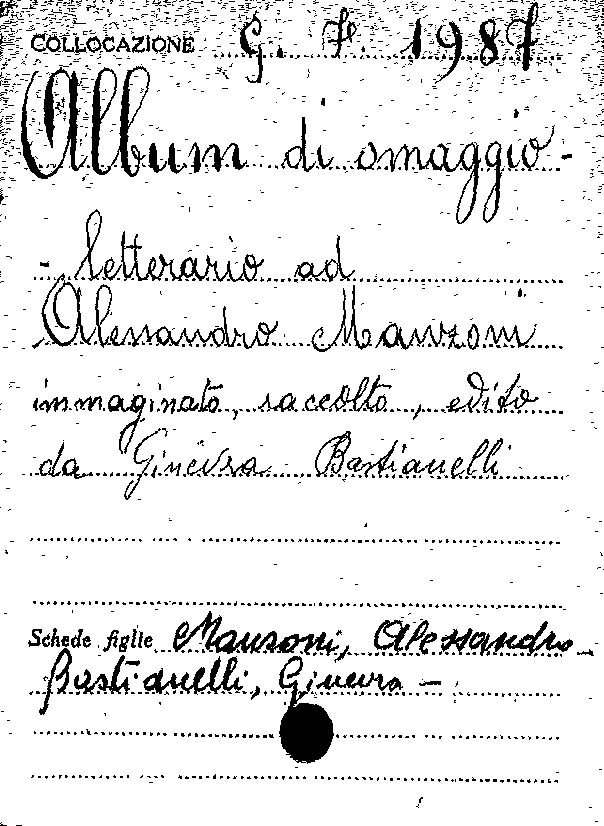 COLLOCAZIONE G. F. 1987
Album di omaggio -
- letterario ad
Alessandro Manzoni
immaginato, raccolto, edito
da Ginevra Bastianelli
Schede figlie Manzoni, Alessandro -
Bastianelli, Ginevra -